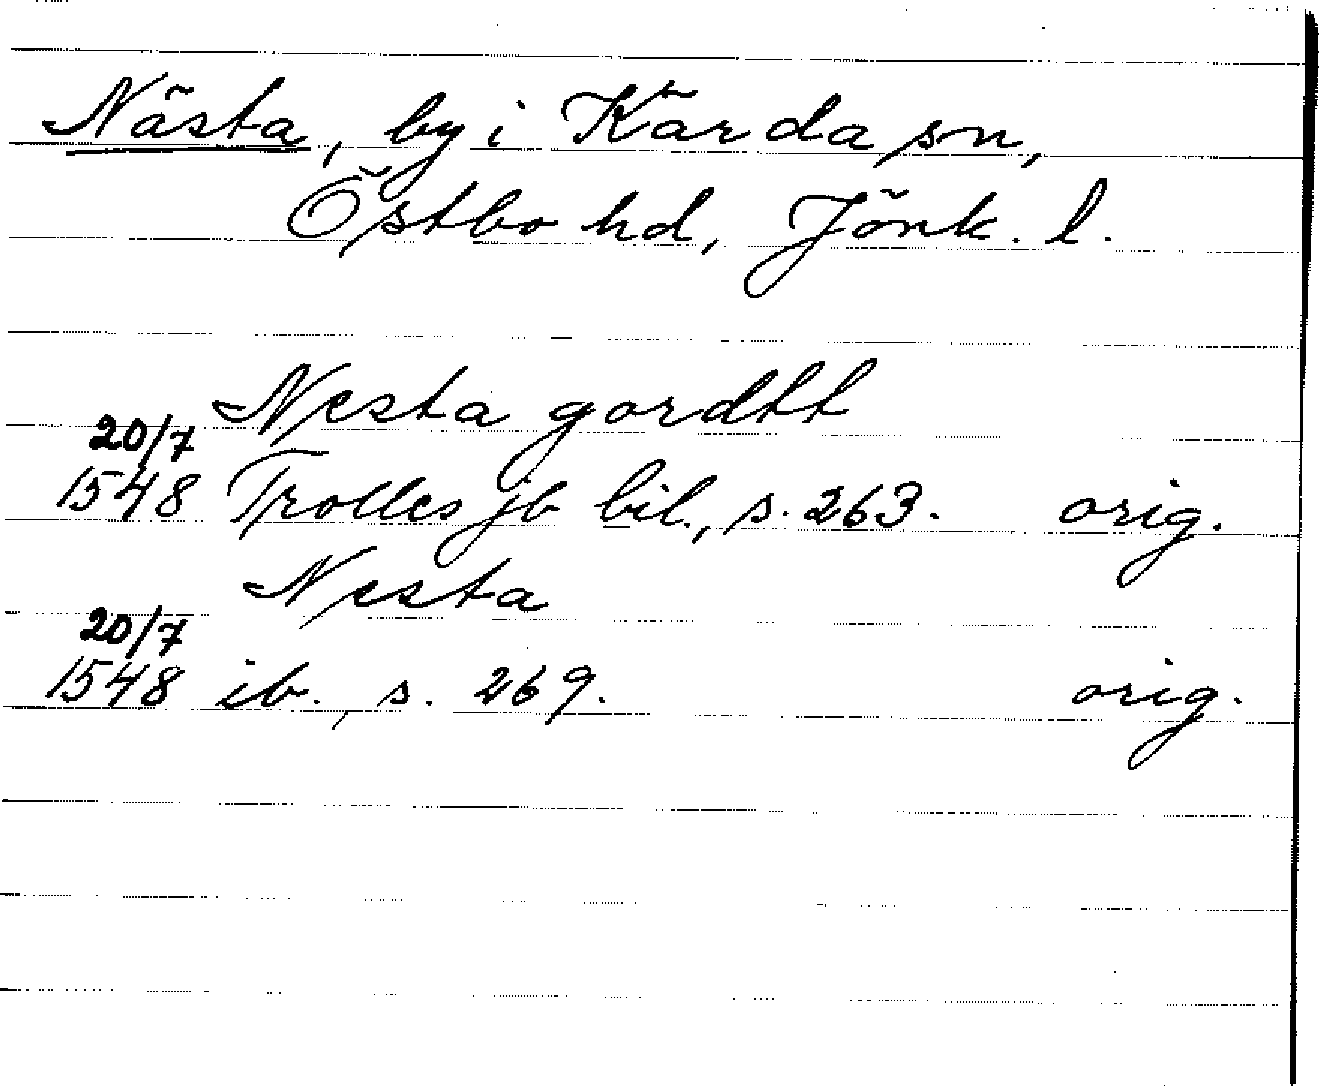 Nästa, by i Kärda sn,
Östbo hd, Jönk. l.
Nesta gordtt
20/7
1548 Trolles jb bil., s. 263. orig.
Nesta
20/7
1548 ib., s. 269. orig.